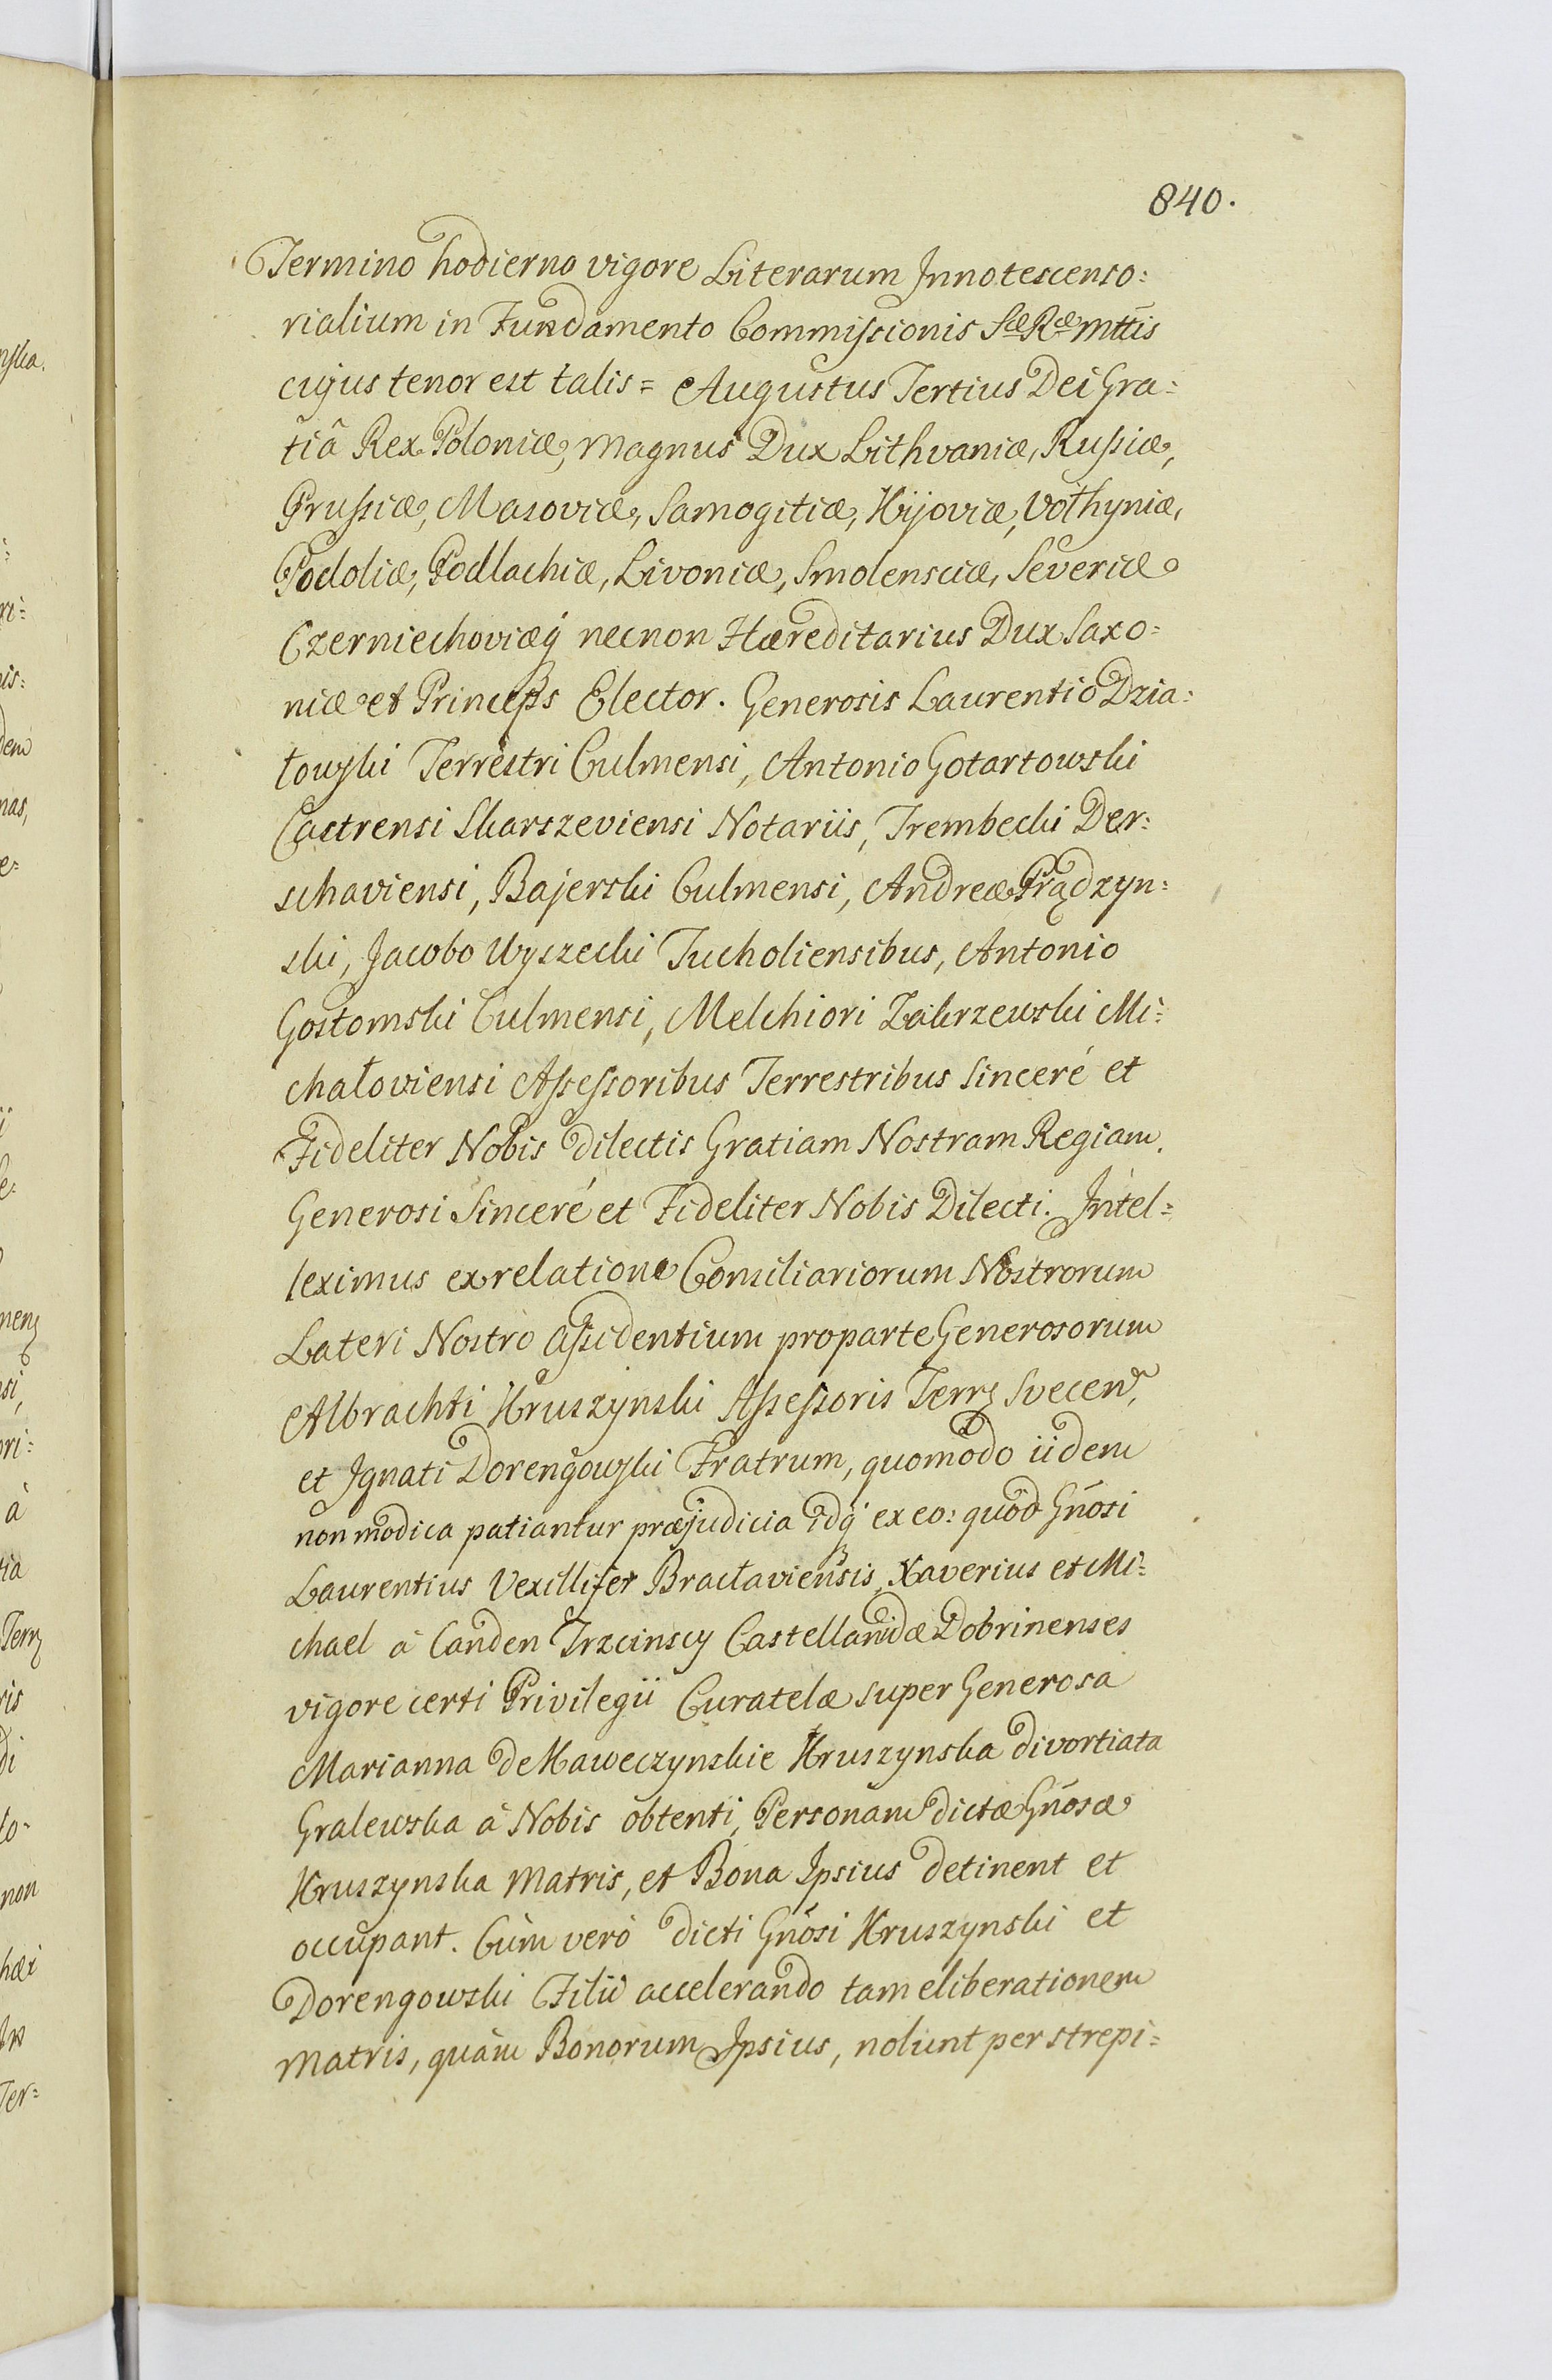 840.
Termino hodierno vigore Literarum Innotescento=
rialium in Fundamento Commissionis Sæ Ræ Mttis
cujus tenor est talis = Augustus Tertius Dei Gra=
tiâ Rex Poloniæ, Magnus Dux Lithvaniæ, Russiæ,
Prussiæ, Masoviæ, Samogitiæ, Kijoviæ, Volhyniæ,
Podoliæ, Podlachiæ, Livoniæ, Smolensciæ, Severiæ
Czerniechoviæq necnon Hæreditarius Dux Saxo=
niæ et Princeps Elector. Generosis Laurentio Dzia=
łowski Terrestri Culmensi, Antonio Gotartowski
Castrensi Skarszeviensi Notariis, Trembecki Der=
schaviensi, Bajerski Culmensi, Andreæ Prądzyn=
ski, Jacobo Wyszecki Tucholiensibus, Antonio
Gostomski Culmensi, Melchiori Zakrzewski Mi=
chałoviensi Assessoribus Terrestribus Sinceré et
Fideliter Nobis Dilectis Gratiam Nostram Regiam.
Generosi Sinceré et Fideliter Nobis Dilecti. Intel=
leximus ex relatione Consiliariorum Nostrorum
Lateri Nostro Assidentium pro parte Generosorum
Albrachti Kruszynski Assessoris Terr Svecen,
et Ignati Dorengowski Fratrum, quomodo iidem
non modica patiantur præjudicia idq ex eo: quod Gñosi
Laurentius Vexillifer Bracłaviensis, Xaverius et Mi=
chael à Canden Trzcinscy Castellanidæ Dobrinenses
vigore certi Privilegii Curatelæ super Generosa
Marianna de Kaweczynskie Kruszynska divortiata
Gralewska â Nobis obtenti, Personam dictæ Gñosæ
Kruszynska Matris, et Bona Ipsius detinent et
occupant. Cùm verò dicti Gñosi Kruszynski et
Dorengowski Filii accelerando tam eliberationem
Matris, quàm Bonorum Ipsius, nolunt per strepi=